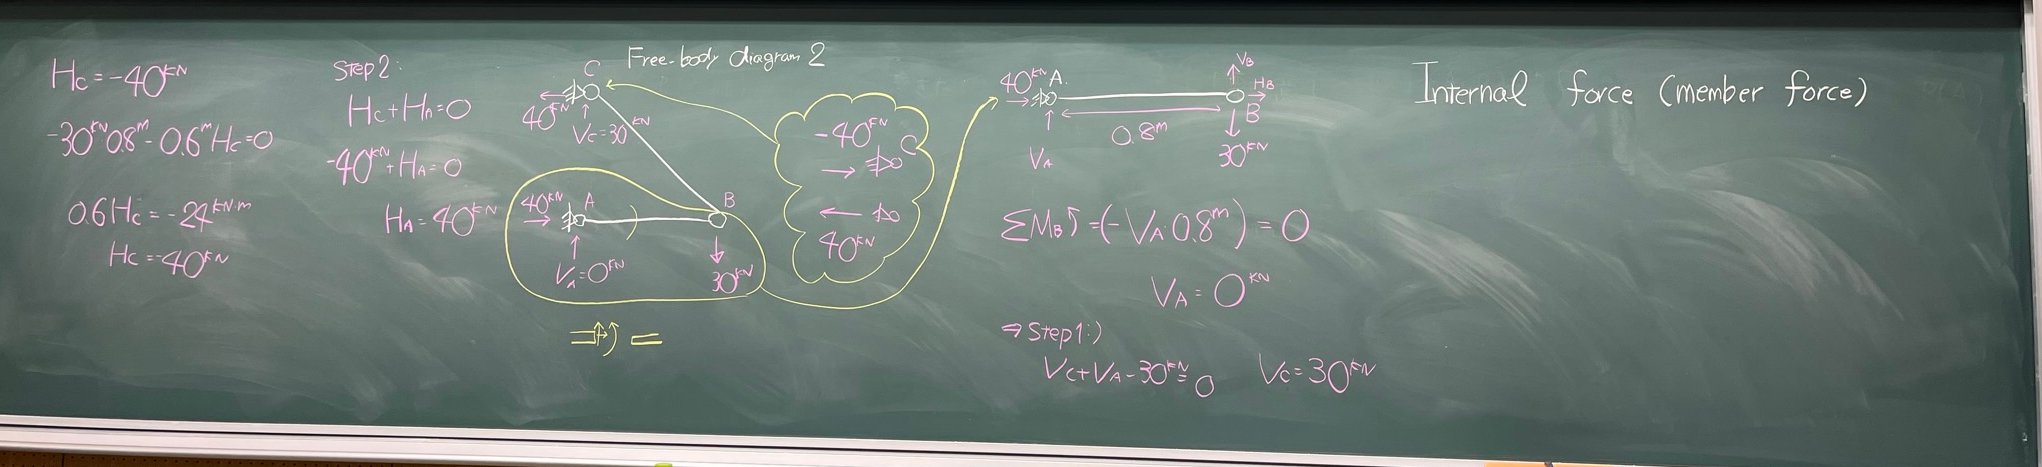 Hc = -40kN
-30kN0.8m - 0.6mHc = 0
0.6Hc = -24kN·m
Hc = -40kN
Step2:
Hc + HA = 0
-40kN + HA = 0
HA = 40kN
Free-body diagram 2
C
40kN
Vc = 30kN
40kN A
B
VA = 0kN
30kN
-40kN
C
40kN
40kN A.
VB
HB
B
0.8m
VA
30kN
ΣMB = (-VA·0.8m) = 0
VA = 0kN
⇒ Step1:)
Vc + VA - 30kN = 0 Vc = 30kN
Internal force (member force)